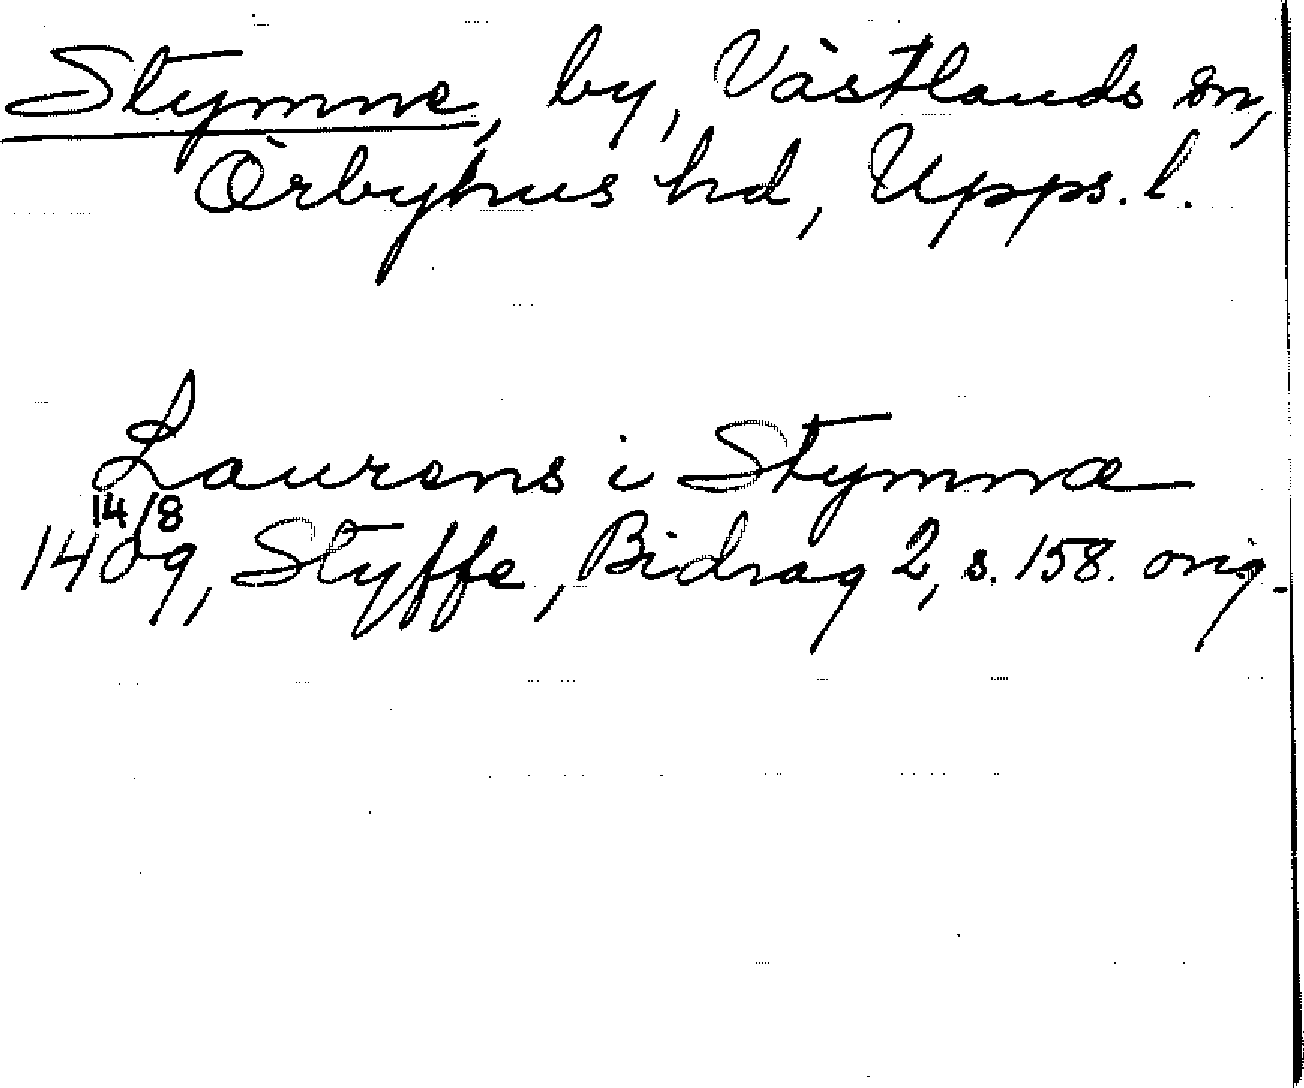 Stymne, by, Västlands sn,
Örbyhus hd, Upps. l.
Laurens i Stymnæ
14/8
1409, Styffe, Bidrag 2, s. 158. orig.